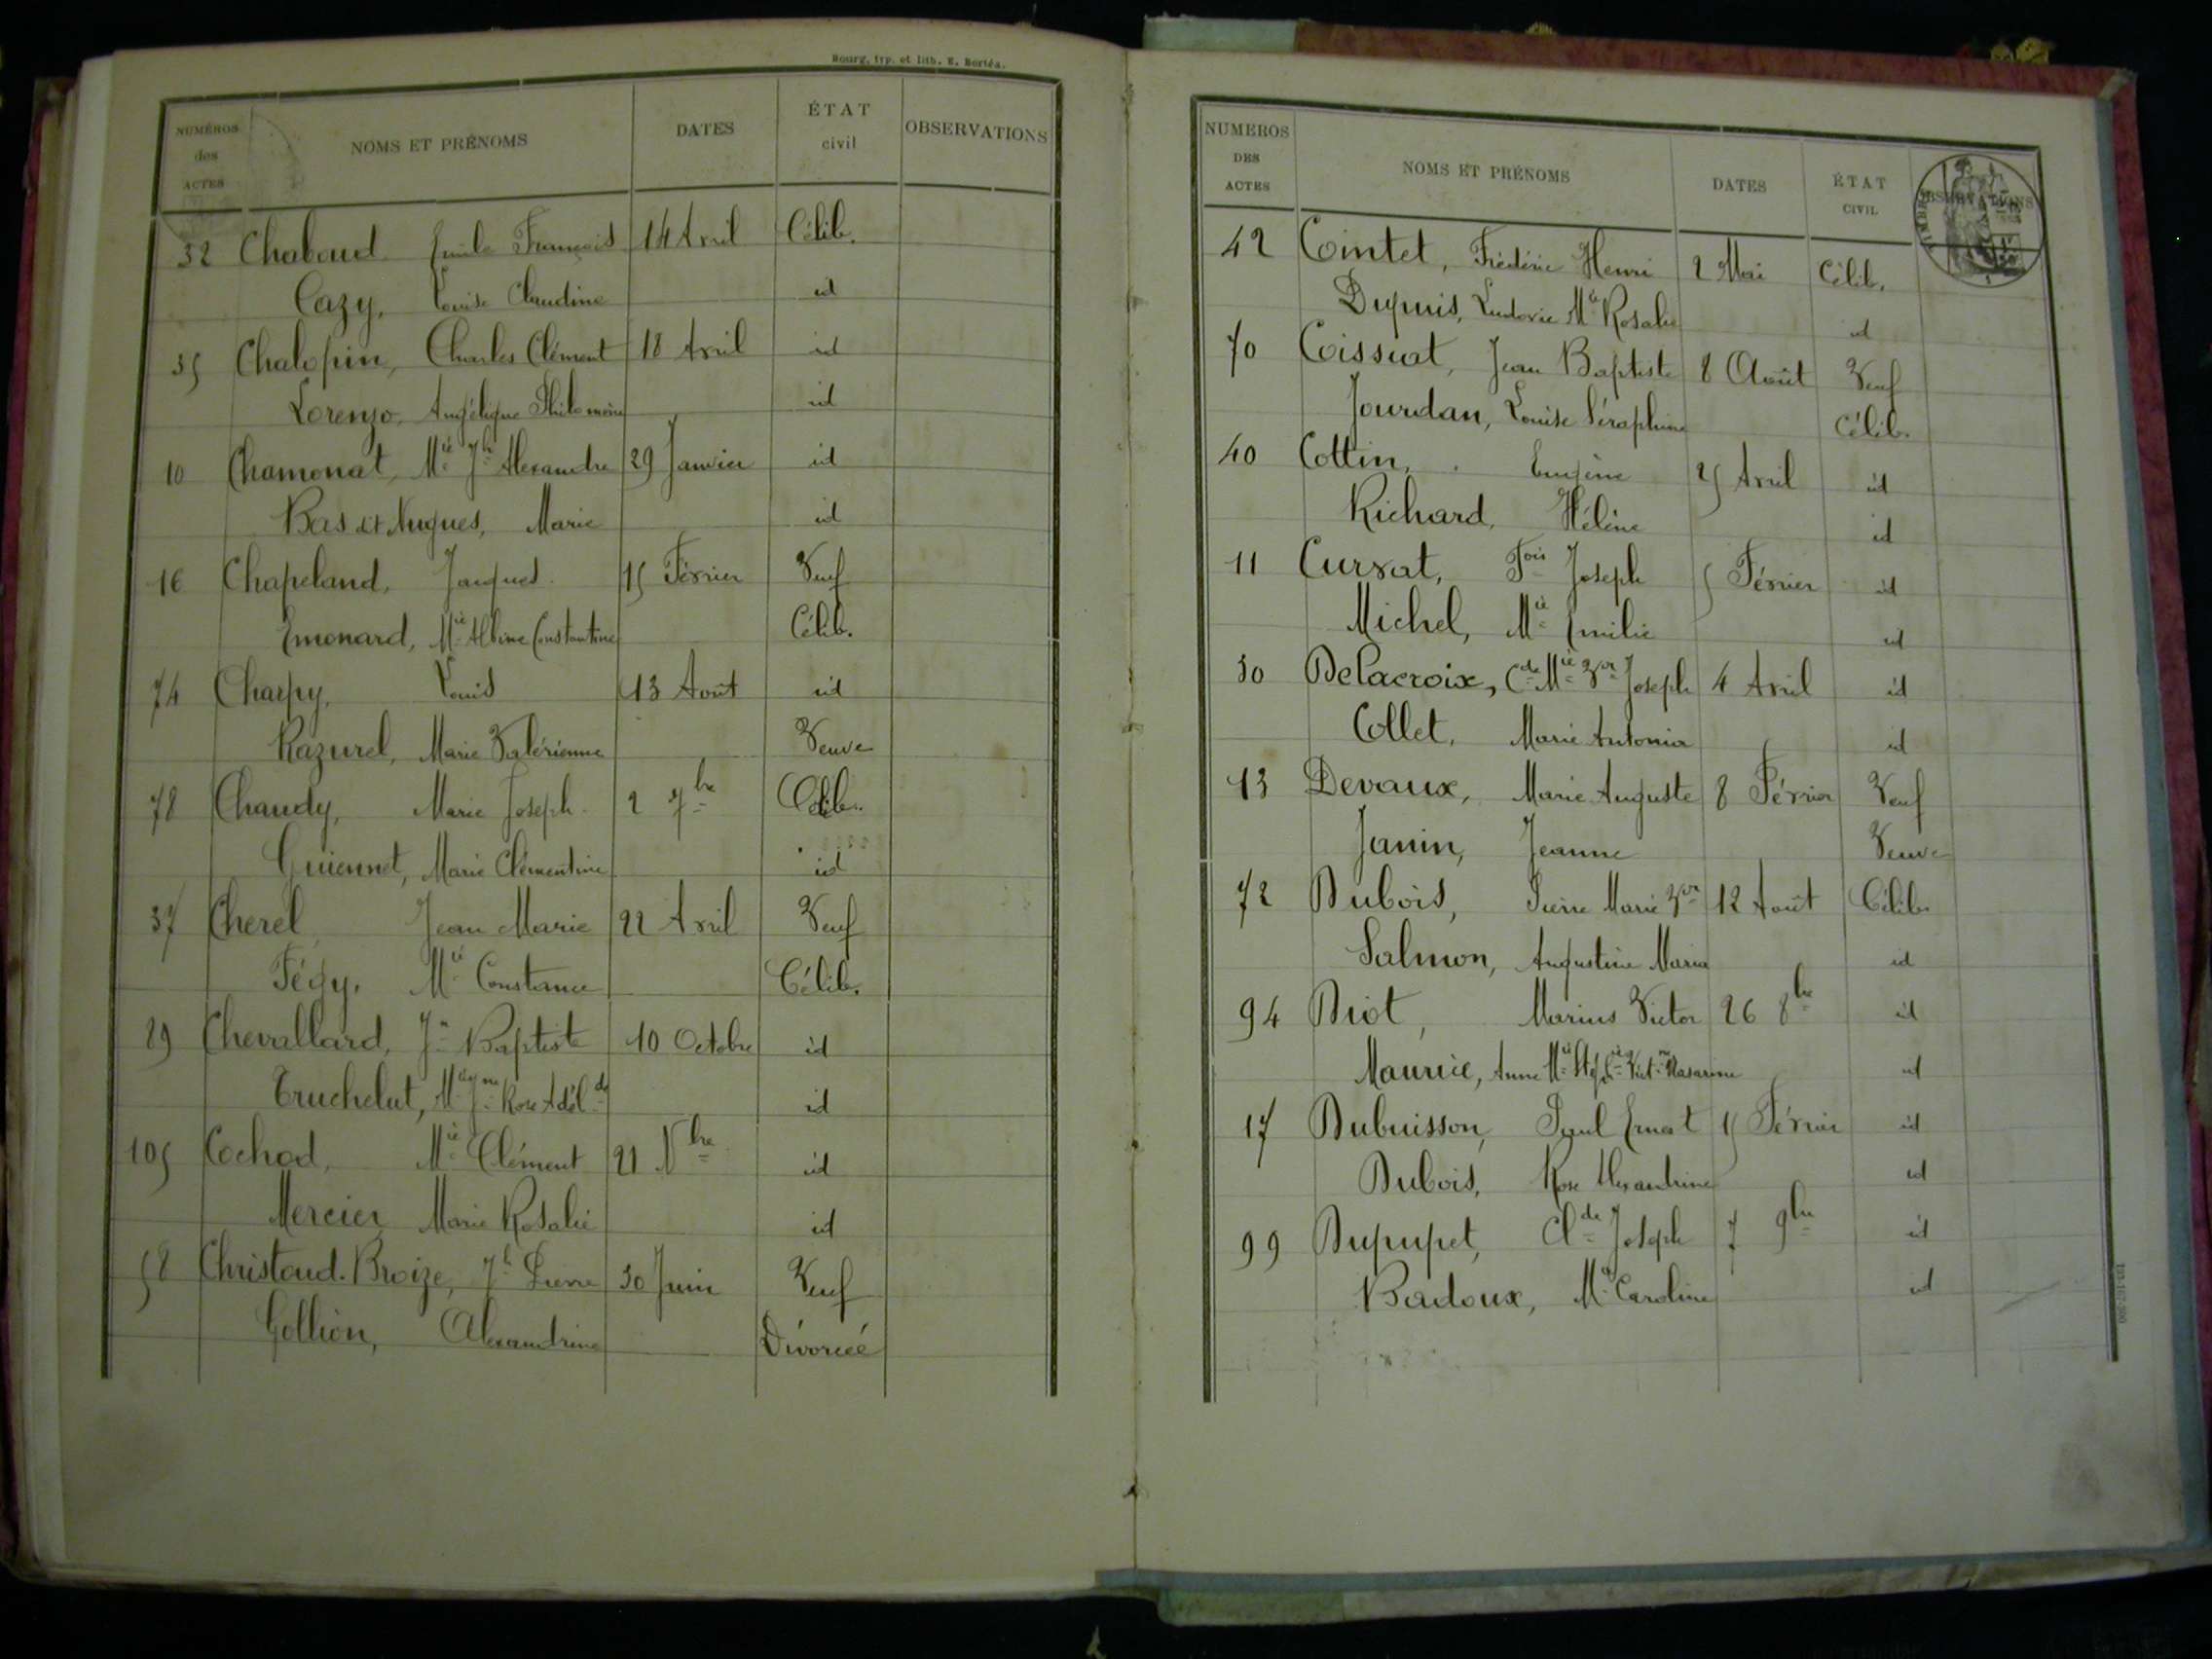 Bourg, typ. et lith. E. Bertéa.
NUMÉROS des ACTES NOMS ET PRÉNOMS DATES ÉTAT civil OBSERVATIONS
32 Chaboud Emile François 14 Avril Célib.
Cazy, Louise Claudine id
35 Chalopin, Charles Clément 18 Avril id
Lorenzo, Angélique Philomène id
10 Chamonat, Mie Jh Alexandre 29 Janvier id
Bas et Nugues, Marie id
16 Chapeland, Jacques 15 Février Veuf
Emonard, Mie Albine Constantine Célib.
74 Charpy, Louis 13 Août id
Razurel, Marie Valérienne Veuve
78 Chaudy, Marie Joseph 2 7bre Célib.
Guiennet, Marie Clémentine id
37 Cherel, Jean Marie 22 Avril Veuf
Fégy, Mie Constance Célib.
89 Chevallard, Jn Baptiste 10 Octobre id
Truchelut, Mie Jne Rose Adélde id
105 Cochod, Mie Clément 21 Nbre id
Mercier Marie Rosalie id
58 Christoud-Broize, Jh Pierre 30 Juin Veuf
Gollion, Alexandrine Divorcée
NUMEROS DES ACTES NOMS ET PRÉNOMS DATES ÉTAT CIVIL OBSERVATIONS
42 Cointet, Frédéric Henri 2 Mai Célib.
Dupuis, Ludovie Mie Rosalie id
70 Coissiat, Jean Baptiste 8 Août Veuf
Jourdan, Louise Séraphine Célib.
40 Cottin, Eugène 25 Avril id
Richard, Hélène id
11 Curvat, Fois Joseph 5 Février id
Michel, Mie Emilie id
30 Delacroix, Cde Mie Vor Joseph 4 Avril id
Collet, Marie Antonia id
13 Devaux, Marie Auguste 8 Février Veuf
Janin, Jeanne Veuve
72 Dubois, Pierre Marie Vor 12 Août Célib.
Salmon, Augustine Maria id
94 Driot, Marius Victor 26 8bre id
Maurice, Anne Mie id
17 Dubuisson, Paul Ernest 15 Février id
Dubois, Rose Alexandrine id
99 Dupupet, Clde Joseph 7 9bre id
Badoux, Mie Caroline id